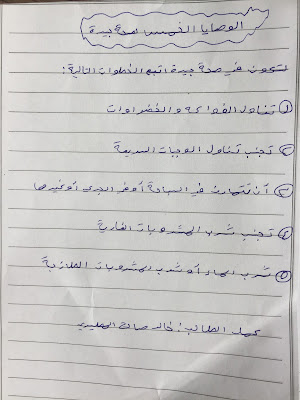 الوصايا الخمس لصحة جيدة
لتكون في صحة جيدة اتبع الخطوات التالية:
① تناول الفواكه و الخضراوات
② تجنب تناول الوجبات السريعة
③ أن تتمرن في السباحة أو في الجري أو غيرها
④ تجنب شرب المشروبات الغازية
⑤ شرب الماء أو شرب المشروبات الطازجة
عمل الطالب: خالد صالح